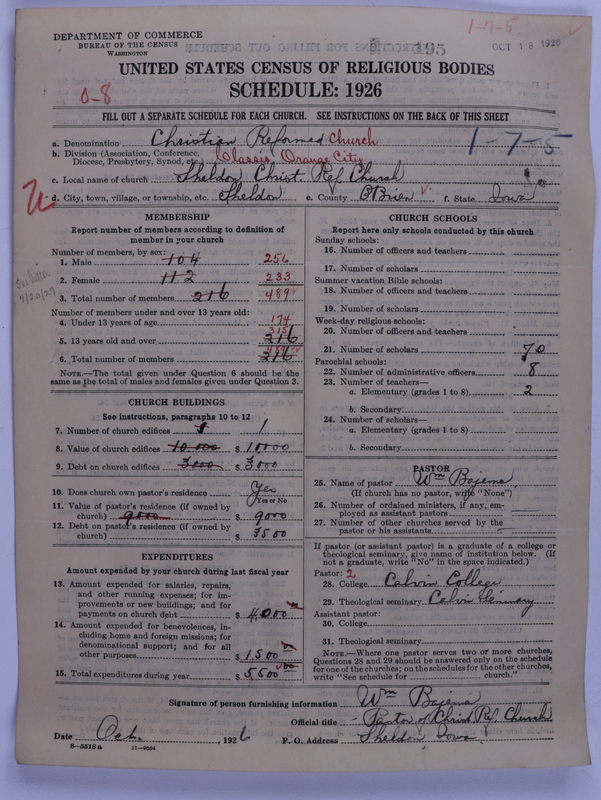 1-7-5
DEPARTMENT OF COMMERCE
BUREAU OF THE CENSUS
WASHINGTON
195
OCT 18 1926
UNITED STATES CENSUS OF RELIGIOUS BODIES
SCHEDULE: 1926
0-8
FILL OUT A SEPARATE SCHEDULE FOR EACH CHURCH. SEE INSTRUCTIONS ON THE BACK OF THIS SHEET
a. Denomination Christian Reformed Church
1-7-5
b. Division (Association, Conference, Diocese, Presbytery, Synod, etc.) Classis Orange City
c. Local name of church Sheldon Christ. Ref. Church
d. City, town, village, or township, etc. Sheldon e. County O'Brien f. State Iowa
MEMBERSHIP
Report number of members according to definition of
member in your church
Number of members, by sex:
1. Male 104 256
2. Female 112 233
3. Total number of members 216 489
Number of members under and over 13 years old:
4. Under 13 years of age 174
5. 13 years old and over 315 216
6. Total number of members 489 216
NOTE.—The total given under Question 6 should be the
same as the total of males and females given under Question 3.
See letter
4/20/29
CHURCH BUILDINGS
See instructions, paragraphs 10 to 12
7. Number of church edifices 1 1
8. Value of church edifices 10.000 $ 10000
9. Debt on church edifices 3000 $ 3000
10. Does church own pastor's residence Yes
Yes or No
11. Value of pastor's residence (if owned by
church) 9000 $ 9000
12. Debt on pastor's residence (if owned by
church) $ 3500
EXPENDITURES
Amount expended by your church during last fiscal year
13. Amount expended for salaries, repairs,
and other running expenses; for im-
provements or new buildings; and for
payments on church debt $ 4000
14. Amount expended for benevolences, in-
cluding home and foreign missions; for
denominational support; and for all
other purposes $ 1500
15. Total expenditures during year $ 5500
CHURCH SCHOOLS
Report here only schools conducted by this church
Sunday schools:
16. Number of officers and teachers
17. Number of scholars
Summer vacation Bible schools:
18. Number of officers and teachers
19. Number of scholars
Week-day religious schools:
20. Number of officers and teachers
21. Number of scholars 70
Parochial schools:
22. Number of administrative officers 8
23. Number of teachers—
a. Elementary (grades 1 to 8) 2
b. Secondary
24. Number of scholars—
a. Elementary (grades 1 to 8)
b. Secondary
PASTOR
25. Name of pastor Wm Bajema
(If church has no pastor, write "None")
26. Number of ordained ministers, if any, em-
ployed as assistant pastors
27. Number of other churches served by the
pastor or his assistants
If pastor (or assistant pastor) is a graduate of a college or
theological seminary, give name of institution below. (If
not a graduate, write "No" in the space indicated.)
Pastor: 2
28. College Calvin College
29. Theological seminary Calvin Seminary
Assistant pastor:
30. College
31. Theological seminary
NOTE.—Where one pastor serves two or more churches,
Questions 28 and 29 should be answered only on the schedule
for one of the churches; on the schedules for the other churches,
write "See schedule for church."
Signature of person furnishing information Wm Bajema
Official title Pastor of Christ. Ref. Church
Date Oct. , 1926 P. O. Address Sheldon Iowa
8-5518a 11-9064